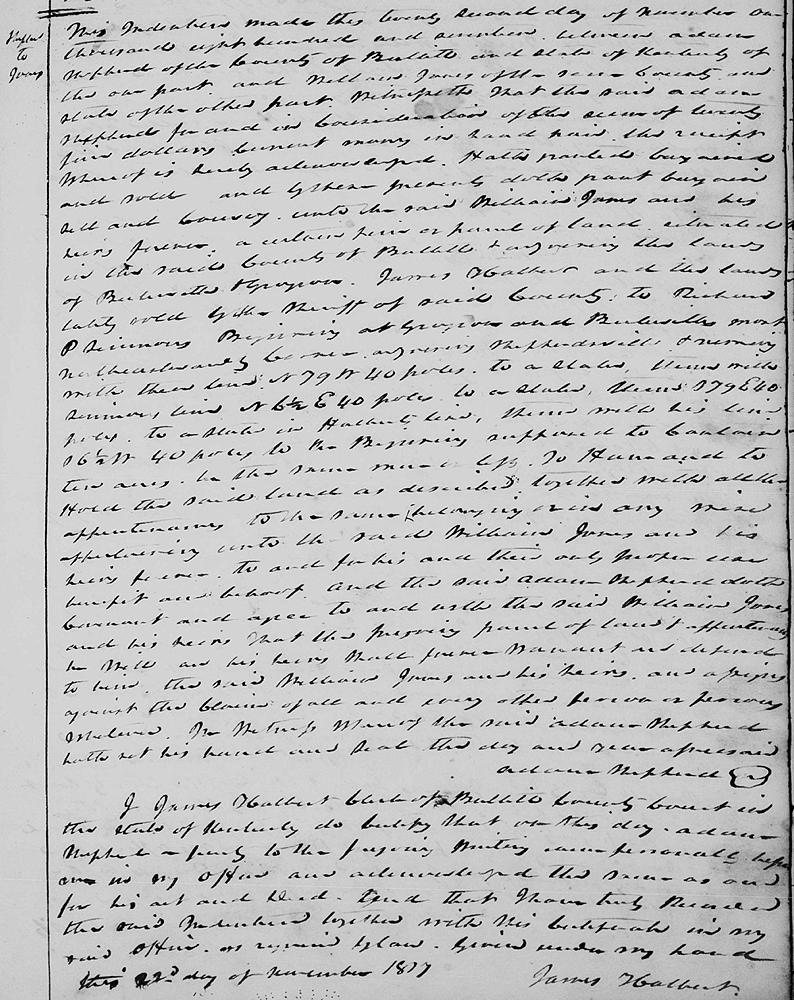 Shepherd
to
Jones
This Indenture made this twenty second day of November one
thousand eight hundred and seventeen between Adam
Shepherd of the County of Bullitt and State of Kentucky of
the one part and William Jones of the same County and
State of the other part Witnesseth That the said Adam
Shepherd for and in Consideration of the sum of twenty
five dollars Current money in hand paid the receipt
Whereof is hereby acknowledged Hath granted bargained
and sold and by these presents doth grant bargain
sell and Convey unto the said William Jones and his
heirs forever a certain piece or parcel of land situated
in the said County of Bullitt & adjoining the lands
of & James Halbert and the lands
lately sold by the Sheriff of said County to Richard
P Simmons Beginning at and most
northeastwardly Corner adjoining Shepherdsville & running
with their line N 79 W 40 poles to a stake, thence with
Simmons line N 6½ E 40 poles to a stake, thence S 79 E 40
poles to a stake in Halberts line, thence with his line
S 6½ W 40 poles to the Beginning supposed to Contain
ten acres be the same more or less To Have and to
Hold the said land as described together with all the
appurtenances to the same belonging or in any wise
appertaining unto the said William Jones and his
heirs forever to and for his and their only proper use
benefit and behoof and the said Adam Shepherd doth
Covenant and agree to and with the said William Jones
and his heirs That the foregoing parcel of land & appurtenances
he Will and his heirs Shall forever Warrant and defend
to him the said William Jones and his heirs and assigns
against the Claim of all and every other person or persons
Whatever In Witness Whereof the said Adam Shepherd
hath set his hand and Seal the day and year aforesaid
Adam Shepherd
I James Halbert Clerk of Bullitt County Court in
the State of Kentucky do Certify that on this day Adam
Shepherd party to the foregoing Writing came personally before
me in my Office and acknowledged the same as and
for his act and deed And that I have truly Recorded
the said Indenture together with this Certificate in my
said Office as required by law Given under my hand
this 22d day of November 1817
James Halbert